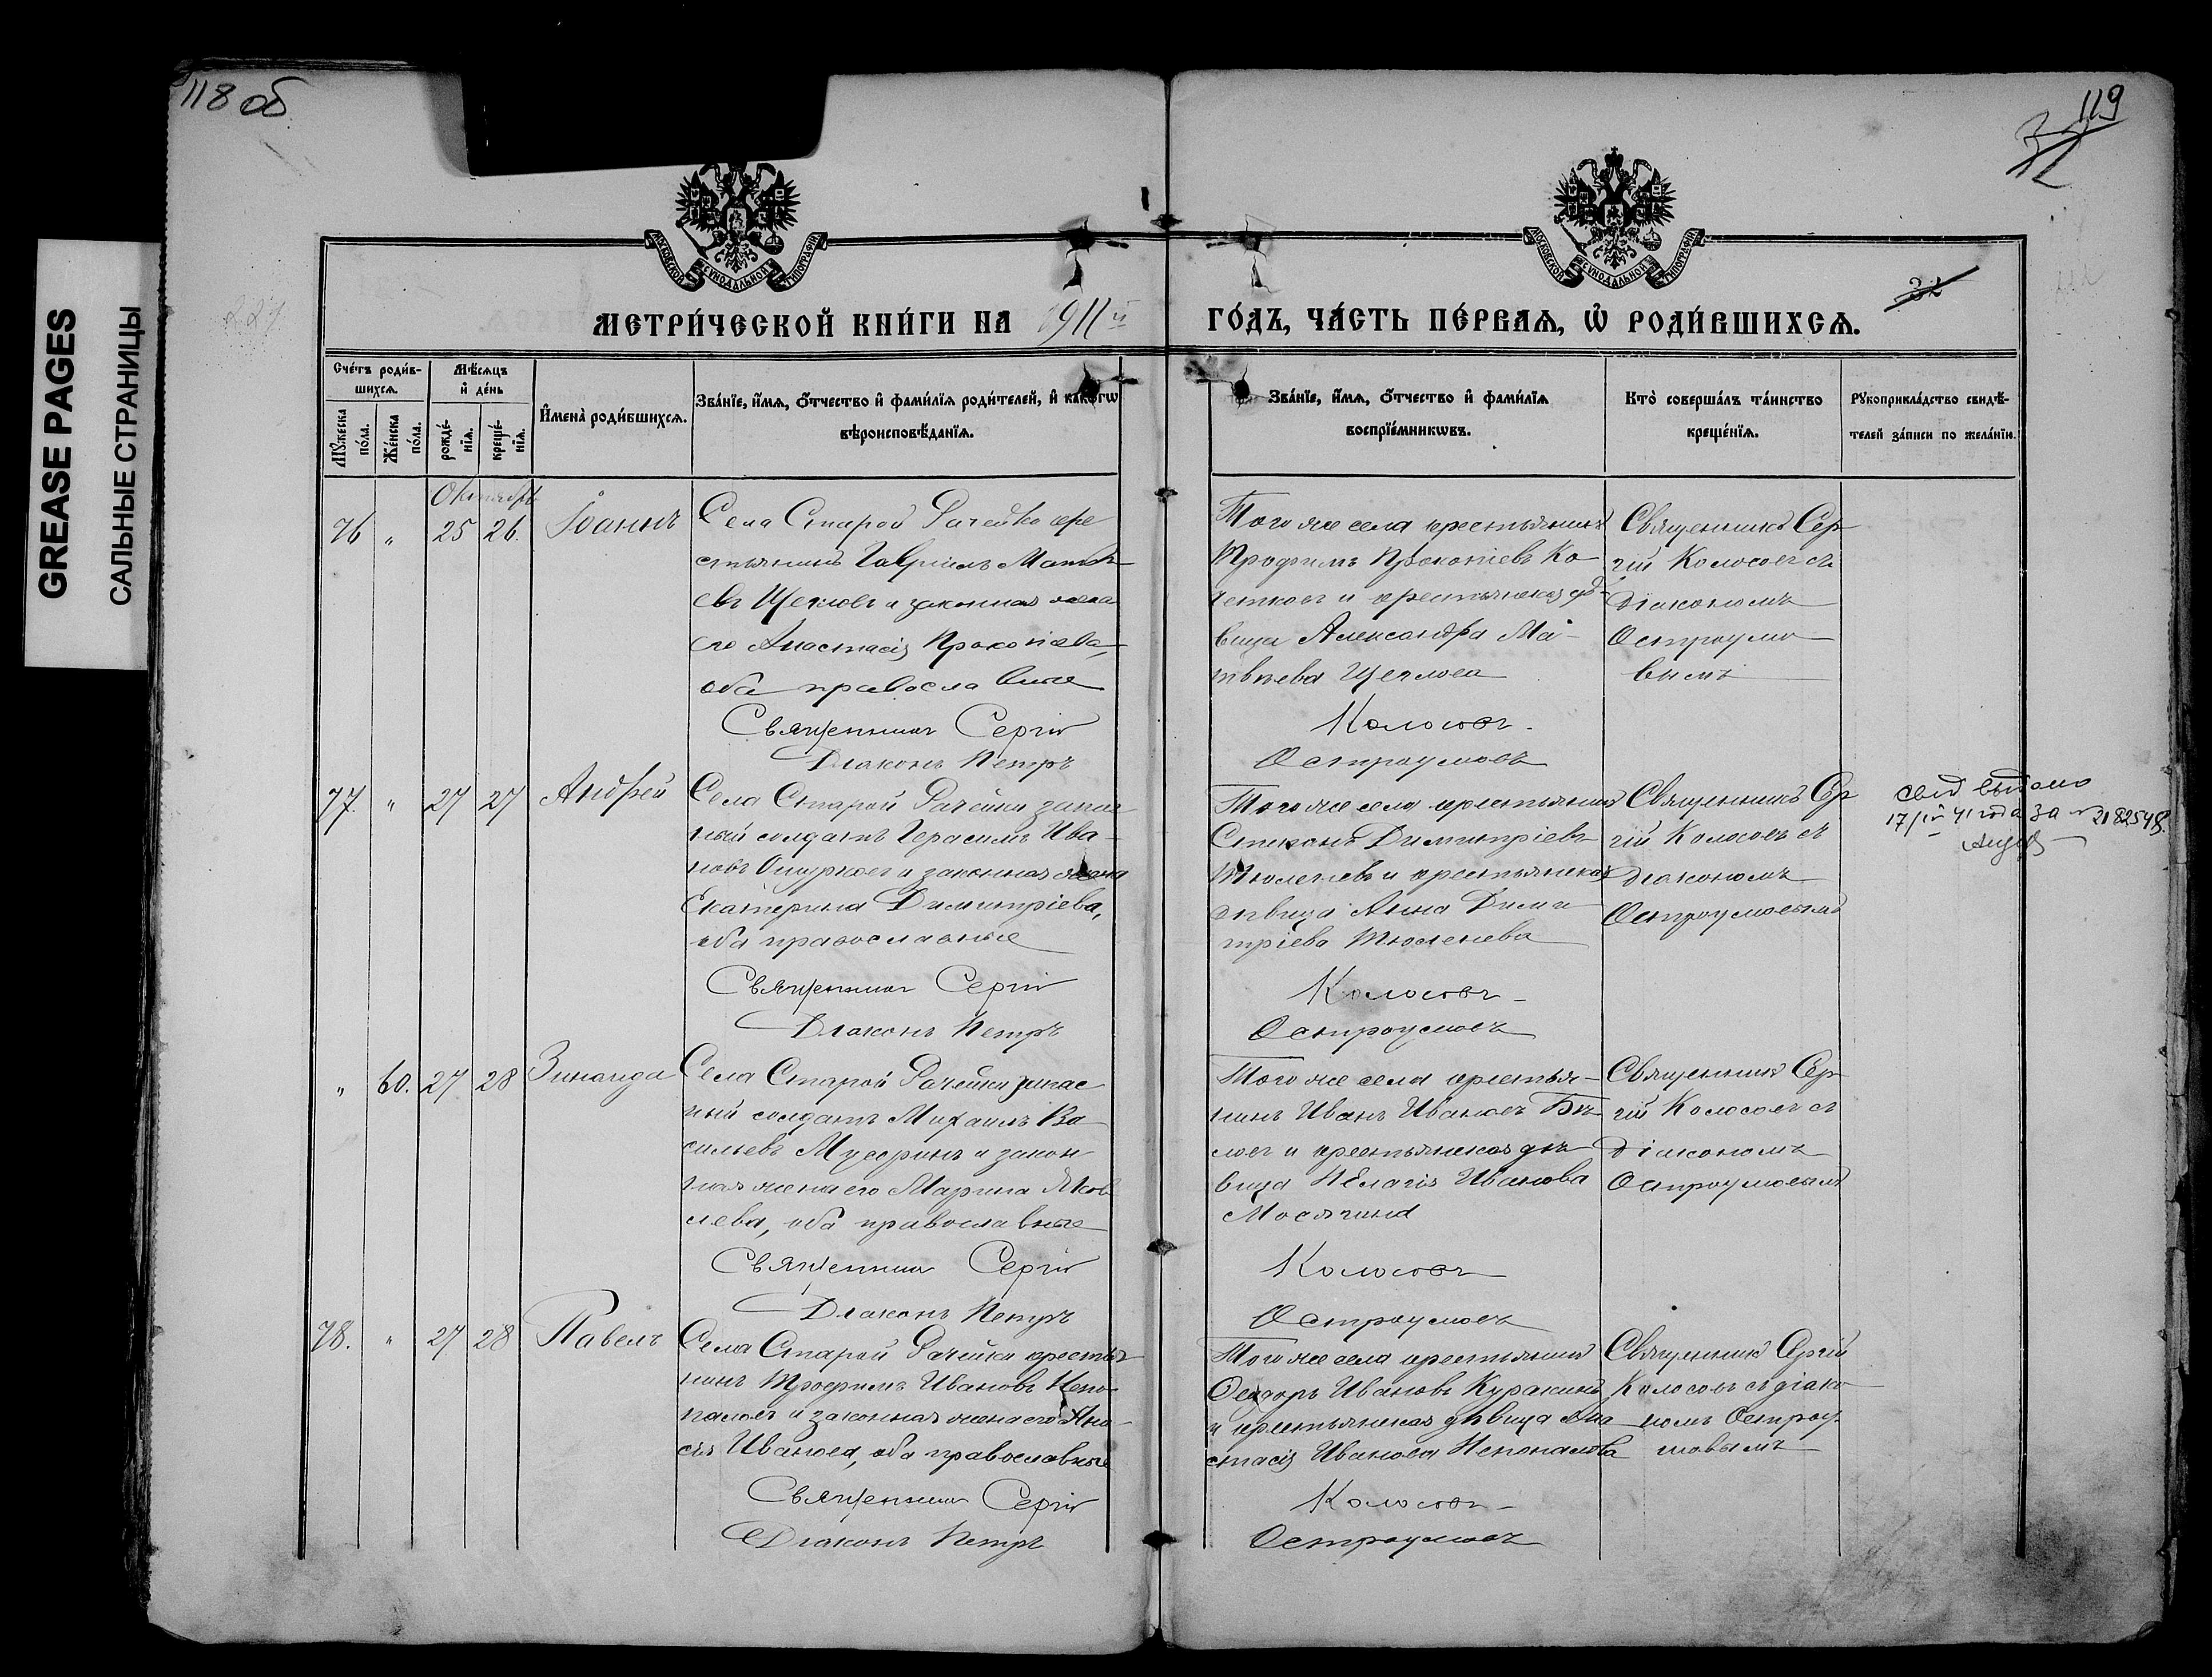 GREASE PAGES
САЛЬНЫЕ СТРАНИЦЫ
118 об
119
32
МОСКОВСКОЙ СѴНОДАЛЬНОЙ ТИПОГРАФІИ
МОСКОВСКОЙ СѴНОДАЛЬНОЙ ТИПОГРАФІИ
МЕТРИ́ЧЕСКОЙ КНИ́ГИ НА 1911й ГО́ДЪ, ЧА́СТЬ ПЕ́РВАѦ, Ѡ РОДИ́ВШИХСѦ.
32
Сче́тъ роди́в-
шихсѧ.
Мꙋ́жеска по́ла.
Же́нска по́ла.
Мѣ́сѧцъ
и҆ де́нь
рожде́-
нїѧ.
креще́-
нїѧ.
И҆мена̀ роди́вшихсѧ.
Зва́нїе, и҆́мѧ, ѻ҆́тчество и҆ фами́лїѧ роди́телей, и҆ како́гѡ
вѣроисповѣ́данїѧ.
Зва́нїе, и҆́мѧ, ѻ҆́тчество и҆ фами́лїѧ
воспрїе́мникѡвъ.
Кто̀ соверша́лъ та́инство
креще́нїѧ.
Рꙋкоприкла́дство свидѣ́-
телей за́писи по жела́нїю.
Октябрь
76 " 25 26. Іоаннъ
Села Старой Рачейки кре
стьянинъ Гавріилъ Матвѣ
евъ Щегловъ и законная жена
его Анастасія Прокопіева,
оба православные
Священникъ Сергій
Діаконъ Петръ
Того же села крестьянинъ
Трофимъ Прокопіевъ Ко-
четковъ и крестьянская дѣ-
вица Александра Ма-
твѣева Щеглова
Колосовъ
Остроумовъ
Священникъ Сер-
гій Колосовъ съ
діакономъ
Остроумо
вымъ
77. " 27 27 Андрей
Села Старой Рачейки запас
ный солдатъ Герасимъ Ива-
новъ Ошурковъ и законная жена
Екатерина Димитріева,
оба православные
Священникъ Сергій
Діаконъ Петръ
Того же села крестьянинъ
Степанъ Димитріевъ
Тюленевъ и крестьянская
дѣвица Анна Дими
тріева Тюленева
Колосовъ
Остроумовъ
Священникъ Сер
гій Колосовъ съ
діакономъ
Остроумовымъ
свид выдано
17/ 41 года за № 2182548.
" 60. 27 28 Зинаида
Села Старой Рачейки запас
ный солдатъ Михаилъ Ва
сильевъ Мусоринъ и закон
ная жена его Марина Яков
лева, оба православные
Священникъ Сергій
Діаконъ Петръ
Того же села крестья-
нинъ Иванъ Ивановъ Бѣ-
ловъ и крестьянская дѣ
вица Пелагія Иванова
Мосягина
Колосовъ
Остроумовъ
Священникъ Сер-
гій Колосовъ съ
діакономъ
Остроумовымъ
78. " 27 28 Павелъ
Села Старой Рачейки крестья
нинъ Трофимъ Ивановъ Непо-
паловъ и законная жена его Ана-
сія Иванова, оба православные
Священникъ Сергій
Діаконъ Петръ
Того же села крестьянинъ
Ѳеодоръ Ивановъ Куракинъ
и крестьянская дѣвица Ана
стасія Иванова Непопалова
Колосовъ
Остроумовъ
Священникъ Сергій
Колосовъ съ діако-
номъ Остроу-
мовымъ